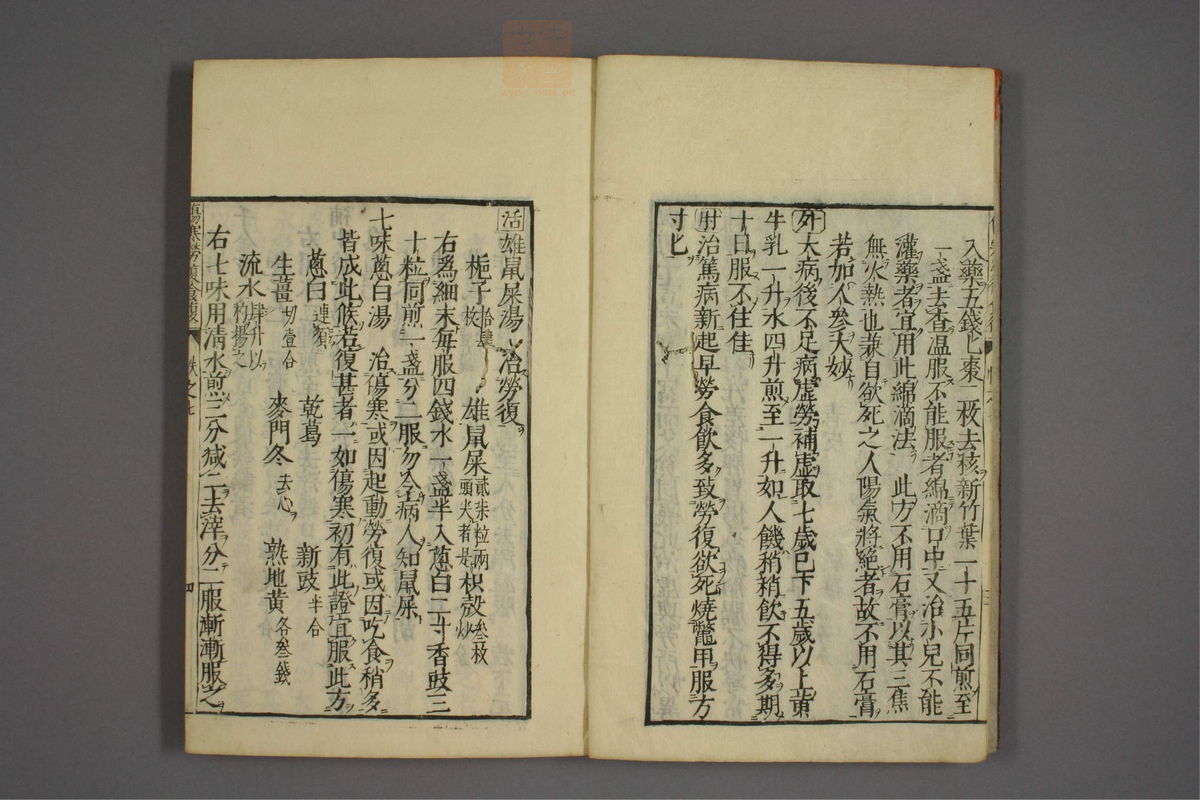 入藥五錢匕棗一枚去核新竹葉一十五片同煎至
一盞去查温服不能服者綿滴口中又治小兒不能
灌藥者宜用此綿滴法 此方不用石膏以其三焦
無火熱也兼自欲死之人陽氣將絕者故不用石膏
若加人參大妙
外大病後不足病虛勞補虛取七歲已下五歲以上黃
牛乳一升水四升煎至一升如人饑稍稍飲不得多期
十日服不住佳
肘治篤病新起早勞食飲多致勞復欲死燒鼈甲服方
寸匕
活雄鼠屎湯 治勞復
梔子拾肆枚 雄鼠屎貳柒粒兩頭尖者是 枳殼叁枚炒
右爲細末每服四錢水一盞半入蔥白二寸香豉三
十粒同煎一盞分二服勿令病人知鼠屎
七味蔥白湯 治傷寒或因起動勞復或因吃食稍多
皆成此候若復甚者一如傷寒初有此證宜服此方
蔥白連鬚 乾葛 新豉半合
生薑切壹合 麥門冬去心 熟地黃各叁錢
流水肆升以杓揚之
右七味用清水煎三分減二去滓分二服漸漸服之
傷寒勞復食復 之七 四